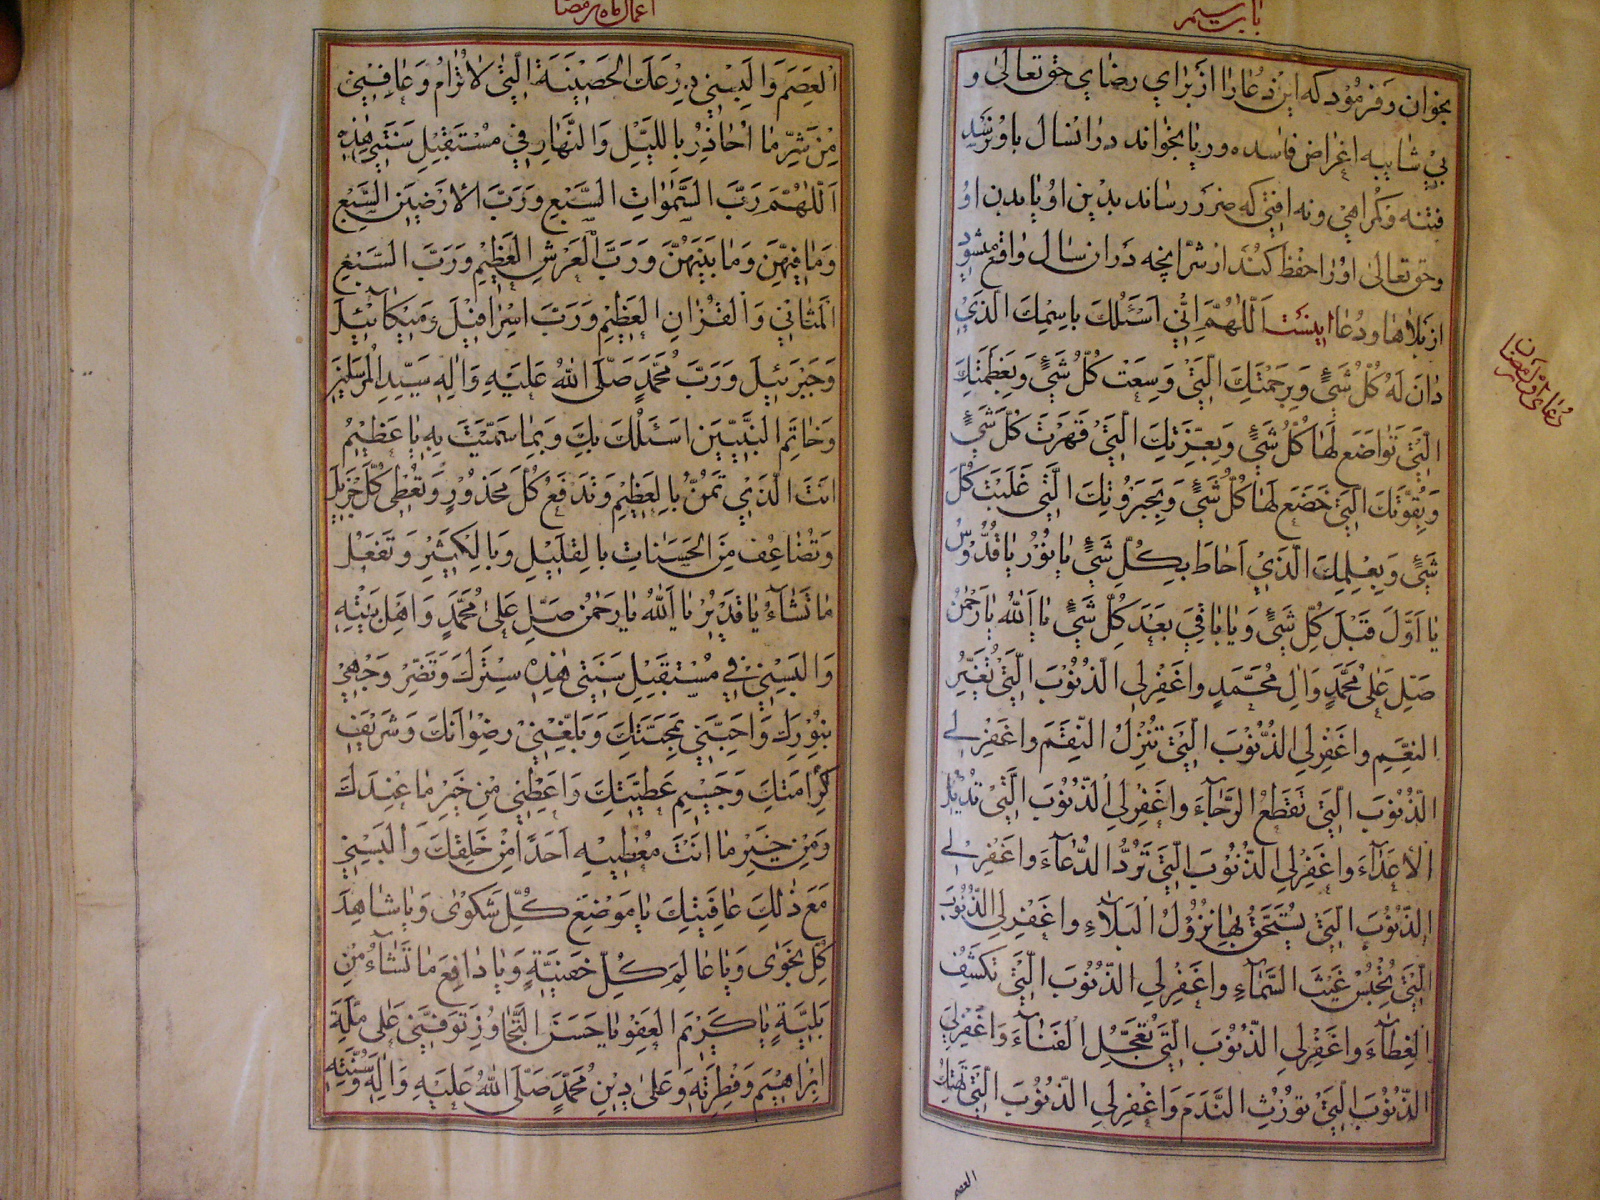 باب سیم
بخوان و فرمود که این دعا را از برای رضای حق تعالی و
بی شایبه اغراض فاسده و ریا بخواند در انسال باو نرسد
فتنه و گمراهی و نه افتی که ضرر رساند بدین او یا بدن او
و حق تعالی او را حفظ کند از شر انچه در ان سال واقع میشود
از بلاها و دعا اینست اَللّٰهُمَّ اِنّی اَسْئَلُكَ بِاسْمِكَ الَّذی
دٰانَ لَهُ كُلُّ شَیْءٍ وَبِرَحْمَتِكَ الَّتی وَسِعَتْ كُلَّ شَیْءٍ وَبِعَظَمَتِكَ
الَّتی تَوٰاضَعَ لَهٰا كُلُّ شَیْءٍ وَبِعِزَّتِكَ الَّتی قَهَرَتْ كُلَّ شَیْءٍ
وَبِقُوَّتِكَ الَّتی خَضَعَ لَهٰا كُلُّ شَیْءٍ وَبِجَبَرُوتِكَ الَّتی غَلَبَتْ كُلَّ
شَیْءٍ وَبِعِلْمِكَ الَّذی اَحٰاطَ بِكُلِّ شَیْءٍ یٰا نُورُ یٰا قُدُّوسُ
یٰا اَوَّلَ قَبْلَ كُلِّ شَیْءٍ وَیٰا بٰاقِیَ بَعْدَ كُلِّ شَیْءٍ یٰا اَللّٰهُ یٰا رَحْمٰنُ
صَلِّ عَلیٰ مُحَمَّدٍ وَاٰلِ مُحَمَّدٍ وَاغْفِرْ لِیَ الذُّنُوبَ الَّتی تُغَیِّرُ
النِّعَمَ وَاغْفِرْ لِیَ الذُّنُوبَ الَّتی تُنْزِلُ النِّقَمَ وَاغْفِرْ لِی
الذُّنُوبَ الَّتی تَقْطَعُ الرَّجٰآءَ وَاغْفِرْ لِیَ الذُّنُوبَ الَّتی تُدیلُ
الْاَعْدٰآءَ وَاغْفِرْ لِیَ الذُّنُوبَ الَّتی تَرُدُّ الدُّعٰآءَ وَاغْفِرْ لِی
الذُّنُوبَ الَّتی یُسْتَحَقُّ بِهٰا نُزُولُ الْبَلٰآءِ وَاغْفِرْ لِیَ الذُّنُوبَ
الَّتی تَحْبِسُ غَیْثَ السَّمٰآءِ وَاغْفِرْ لِیَ الذُّنُوبَ الَّتی تَكْشِفُ
الْغِطٰآءَ وَاغْفِرْ لِیَ الذُّنُوبَ الَّتی تُعَجِّلُ الْفَنٰآءَ وَاغْفِرْ لِیَ
الذُّنُوبَ الَّتی تُورِثُ النَّدَمَ وَاغْفِرْ لِیَ الذُّنُوبَ الَّتی تَهْتِكُ
العصم
اعمال ماه رمضان
الْعِصَمَ وَاَلْبِسْنی دِرْعَكَ الْحَصینَةَ الَّتی لٰا تُرٰامُ وَعٰافِنی
مِنْ شَرِّ مٰا اُحٰاذِرُ بِاللَّیْلِ وَالنَّهٰارِ فی مُسْتَقْبِلِ سَنَتی هٰذِهِ
اَللّٰهُمَّ رَبَّ السَّمٰوٰاتِ السَّبْعِ وَرَبَّ الْاَرَضینَ السَّبْعِ
وَمٰا فیهِنَّ وَمٰا بَیْنَهُنَّ وَرَبَّ الْعَرْشِ الْعَظیمِ وَرَبَّ السَّبْعِ
الْمَثٰانی وَالْقُرْاٰنِ الْعَظیمِ وَرَبَّ اِسْرٰافیلَ وَمیكٰآئیلَ
وَجَبْرَئیلَ وَرَبَّ مُحَمَّدٍ صَلَّی اللّٰهُ عَلَیْهِ وَاٰلِهِ سَیِّدِ الْمُرْسَلینَ
وَخٰاتَمِ النَّبِیّینَ اَسْئَلُكَ بِكَ وَبِمٰا سَمَّیْتَ بِهِ یٰا عَظیمُ
اَنْتَ الَّذی تَمُنُّ بِالْعَظیمِ وَتَدْفَعُ كُلَّ مَحْذُورٍ وَتُعْطی كُلَّ جَزیلٍ
وَتُضٰاعِفُ مِنَ الْحَسَنٰاتِ بِالْقَلیلِ وَبِالْكَثیرِ وَتَفْعَلُ
مٰا تَشٰآءُ یٰا قَدیرُ یٰا اَللّٰهُ یٰا رَحْمٰنُ صَلِّ عَلیٰ مُحَمَّدٍ وَاَهْلِ بَیْتِهِ
وَاَلْبِسْنی فی مُسْتَقْبِلِ سَنَتی هٰذِهِ سِتْرَكَ وَنَضِّرْ وَجْهی
بِنُورِكَ وَاَحِبَّنی بِمَحَبَّتِكَ وَبَلِّغْنی رِضْوٰانَكَ وَشَریفَ
كَرٰامَتِكَ وَجَسیمَ عَطِیَّتِكَ وَاَعْطِنی مِنْ خَیْرِ مٰا عِنْدَكَ
وَمِنْ خَیْرِ مٰا اَنْتَ مُعْطیهِ اَحَدًا مِنْ خَلْقِكَ وَاَلْبِسْنی
مَعَ ذٰلِكَ عٰافِیَتَكَ یٰا مَوْضِعَ كُلِّ شَكْویٰ وَیٰا شٰاهِدَ
كُلِّ نَجْویٰ وَیٰا عٰالِمَ كُلِّ خَفِیَّةٍ وَیٰا دٰافِعَ مٰا تَشٰآءُ مِنْ
بَلِیَّةٍ یٰا كَریمَ الْعَفْوِ یٰا حَسَنَ التَّجٰاوُزِ تَوَفَّنی عَلیٰ مِلَّةِ
اِبْرٰاهیمَ وَفِطْرَتِهِ وَعَلیٰ دینِ مُحَمَّدٍ صَلَّی اللّٰهُ عَلَیْهِ وَاٰلِهِ وَسُنَّتِهِ